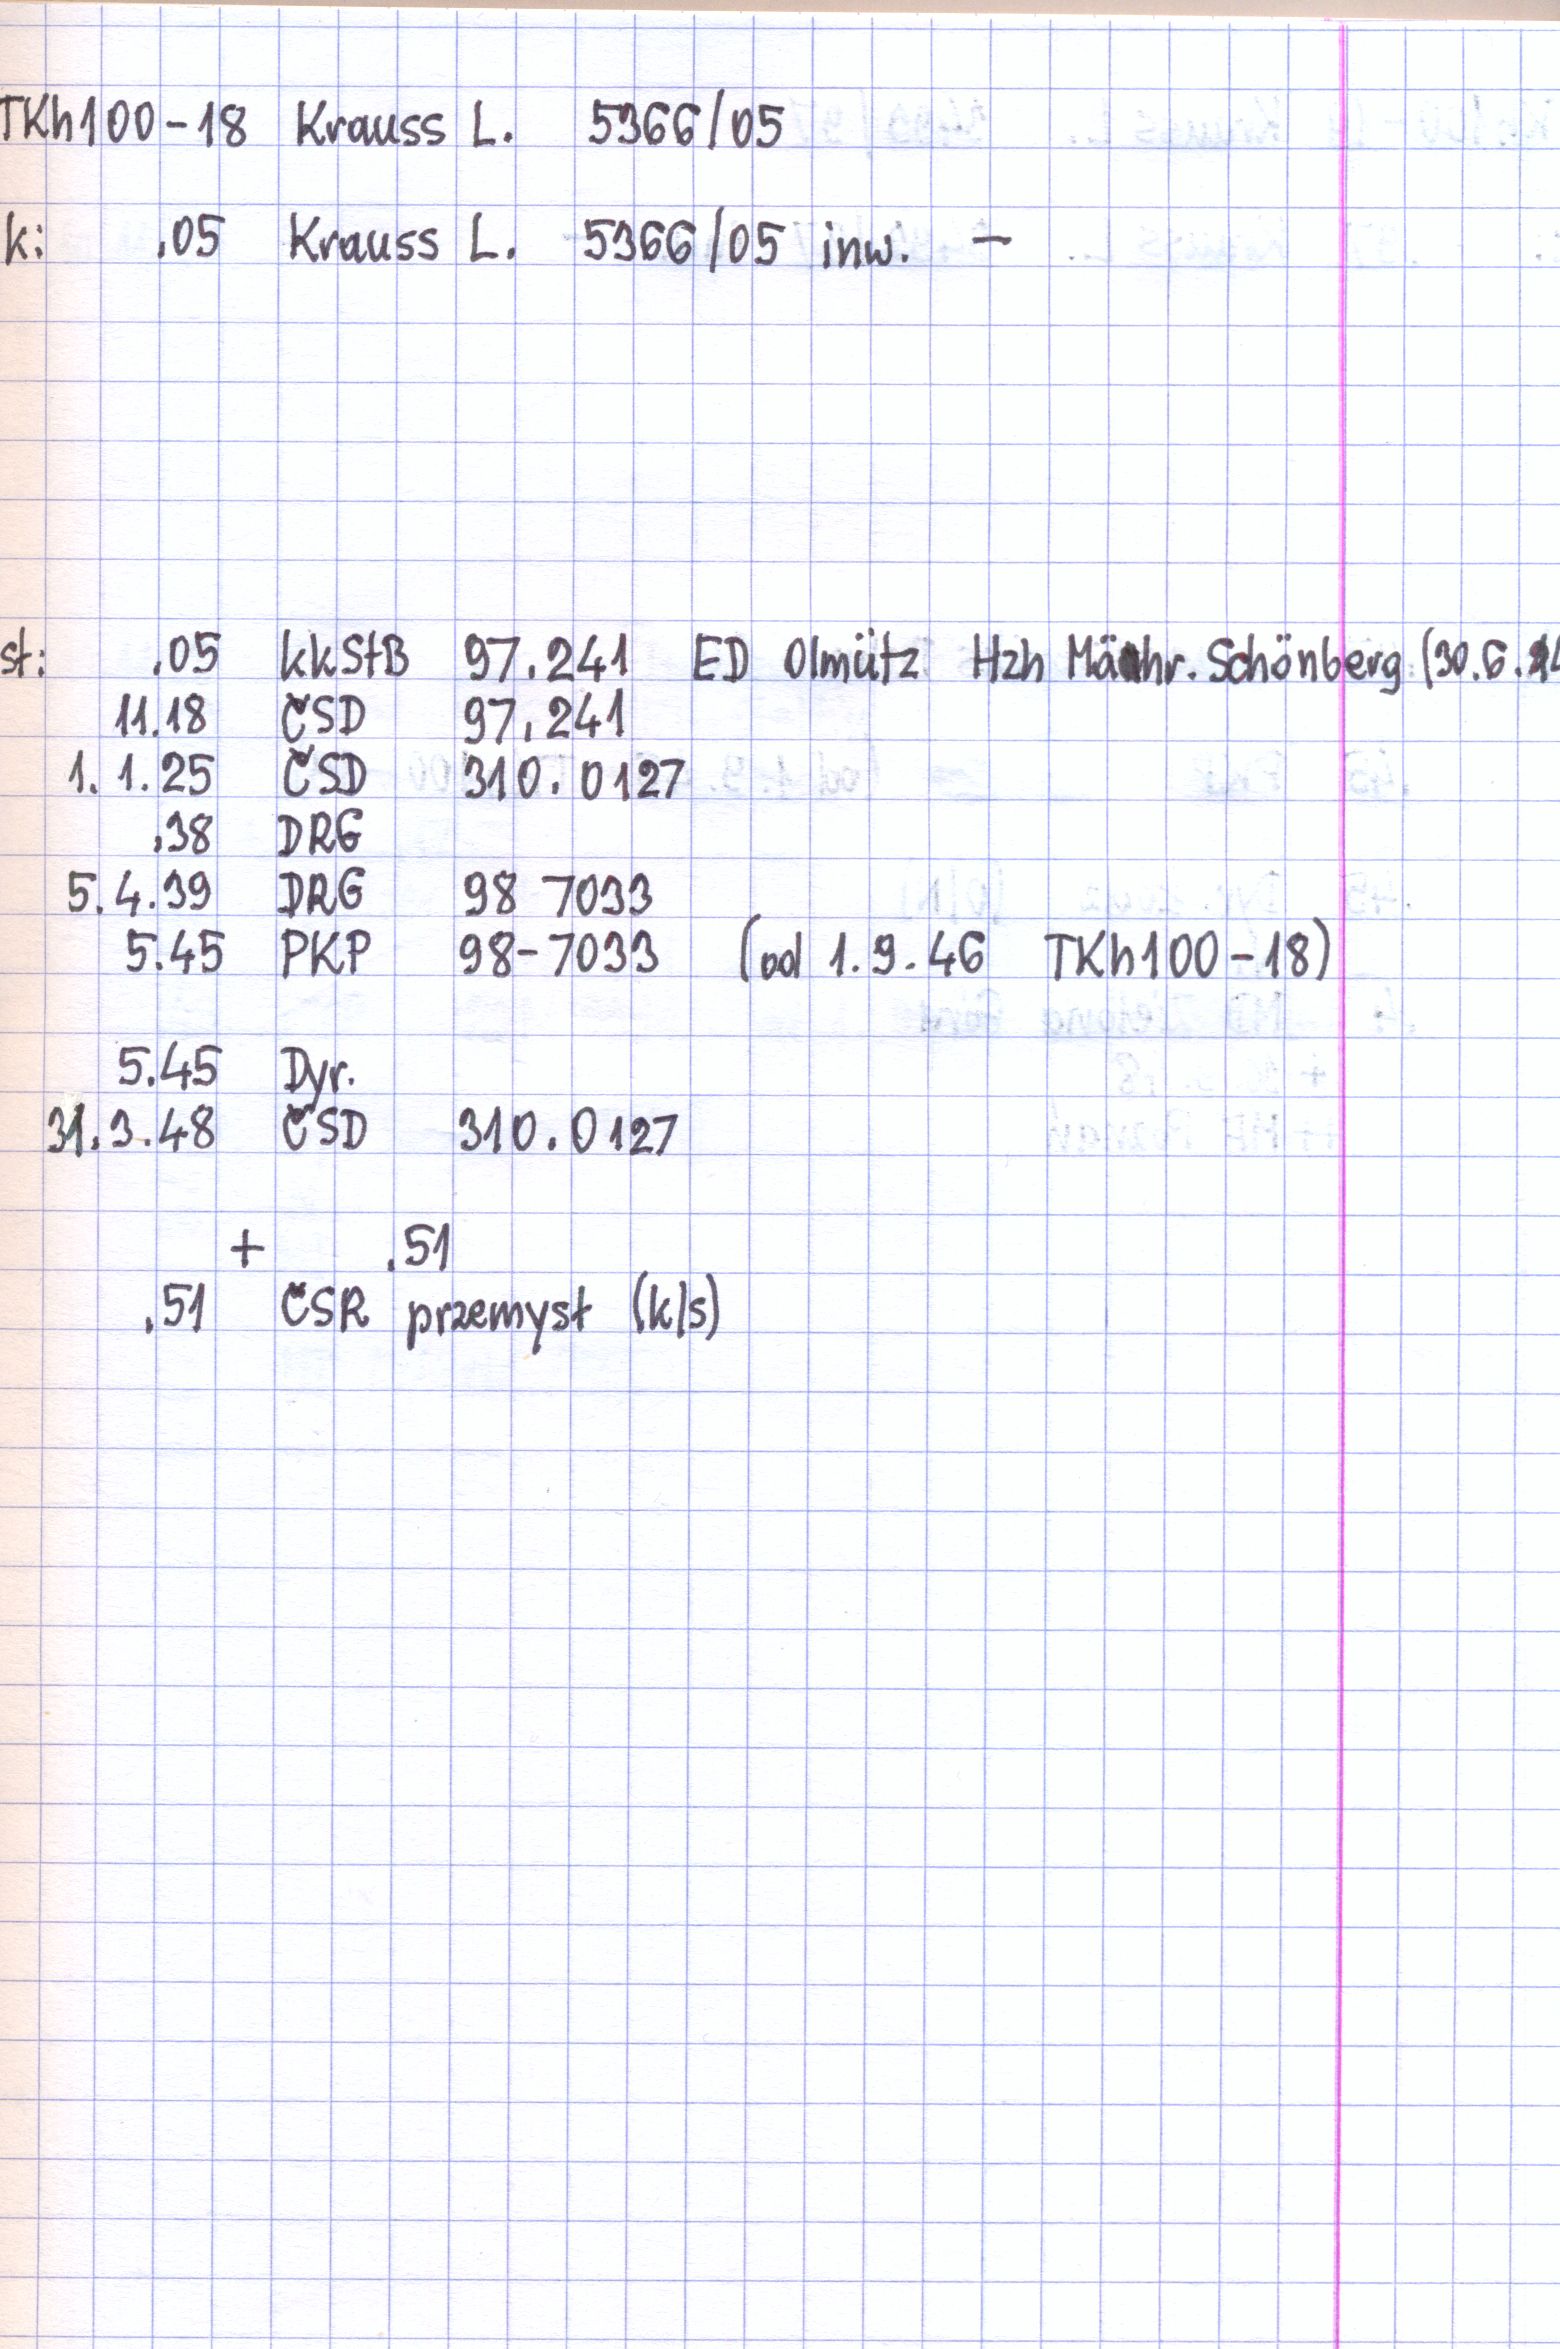 TKh100-18 Krauss L. 5366/05
k: .05 Krauss L. 5366/05 inw. -
st: .05 kkStB 97.241 ED Olmütz Hzh Mähr. Schönberg (30.6.14
11.18 ČSD 97.241
1.1.25 ČSD 310.0127
.38 DRG
5.4.39 DRG 98 7033
5.45 PKP 98-7033 (od 1.9.46 TKh100-18)
5.45 Dyr.
31.3.48 ČSD 310.0127
+ .51
.51 ČSR przemysł (k/s)